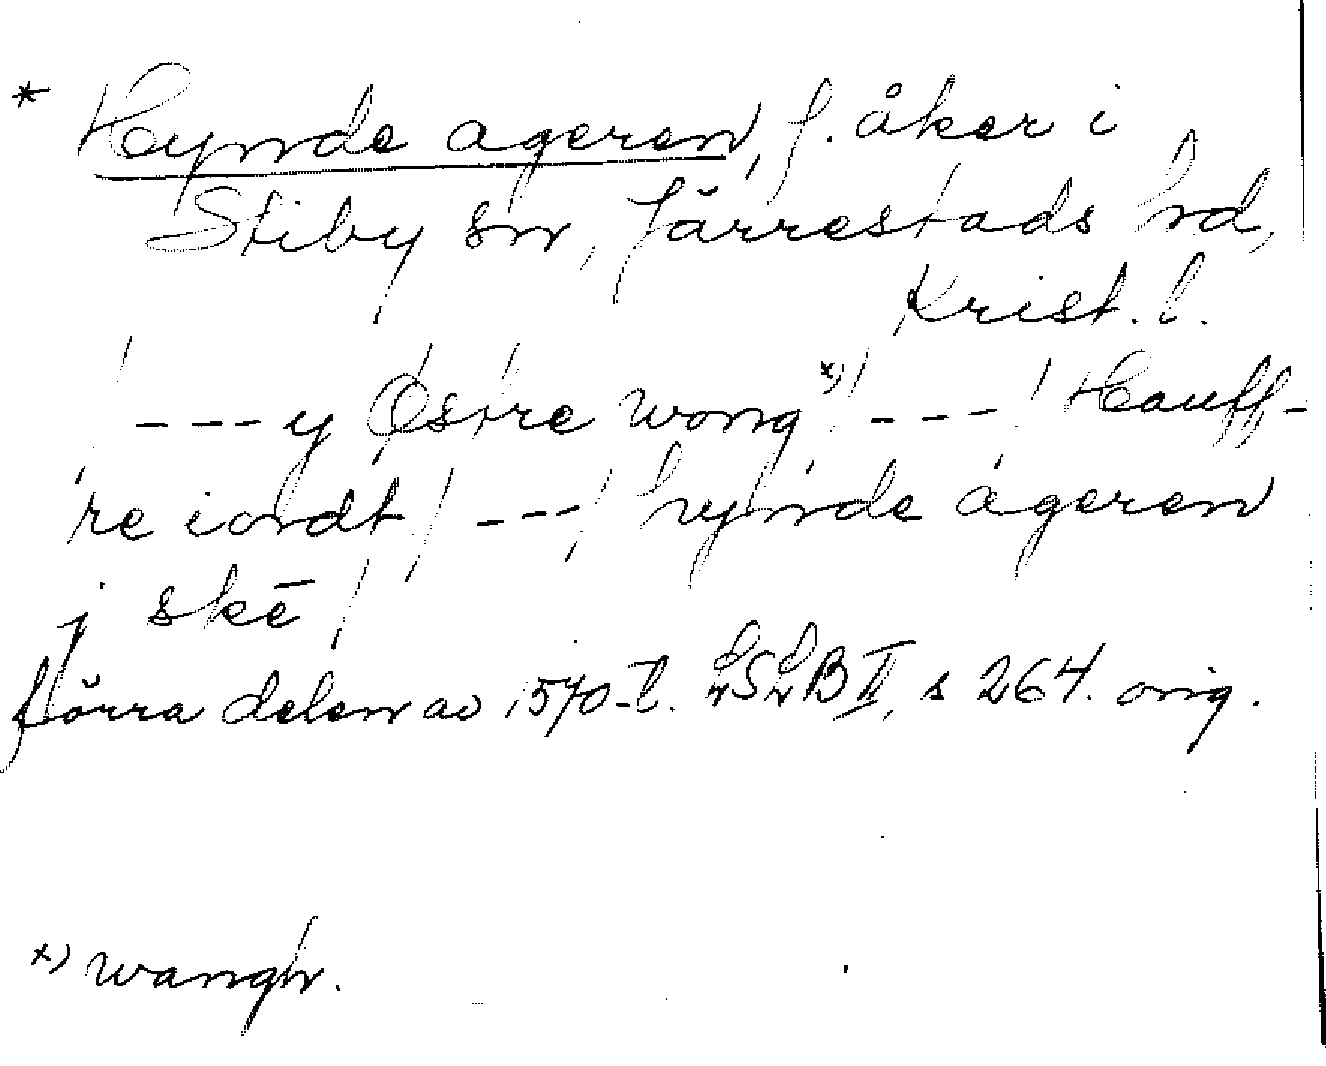 * Hynde ageren, f. åker i
Stiby sn, Järrestads hd,
Krist. l.
/ --- y Østre wong x) / --- / Hauff-
re iordt / --- / hynde ageren
j skē /
förra delen av 1570-t. LSLB II, s 264. orig.
x) wangh.